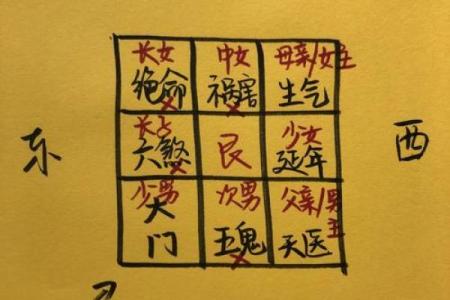 长女 中女 母亲/女主
绝命 祸害 生气
东 西
长子 少女
六煞 艮 延年
少男 次男 父亲/男主
大门 五鬼 天医